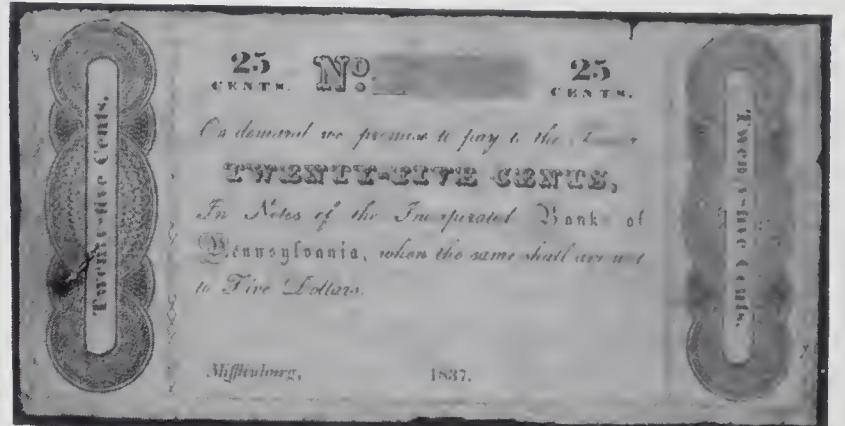 Twenty-five Cents.
25 CENTS. No. 25 CENTS.
On demand we promise to pay to the
TWENTY-FIVE CENTS,
In Notes of the Incorporated Banks of
Pennsylvania, when the same shall amount
to Five Dollars.
Mifflinburg, 1837.
Twenty-five Cents.